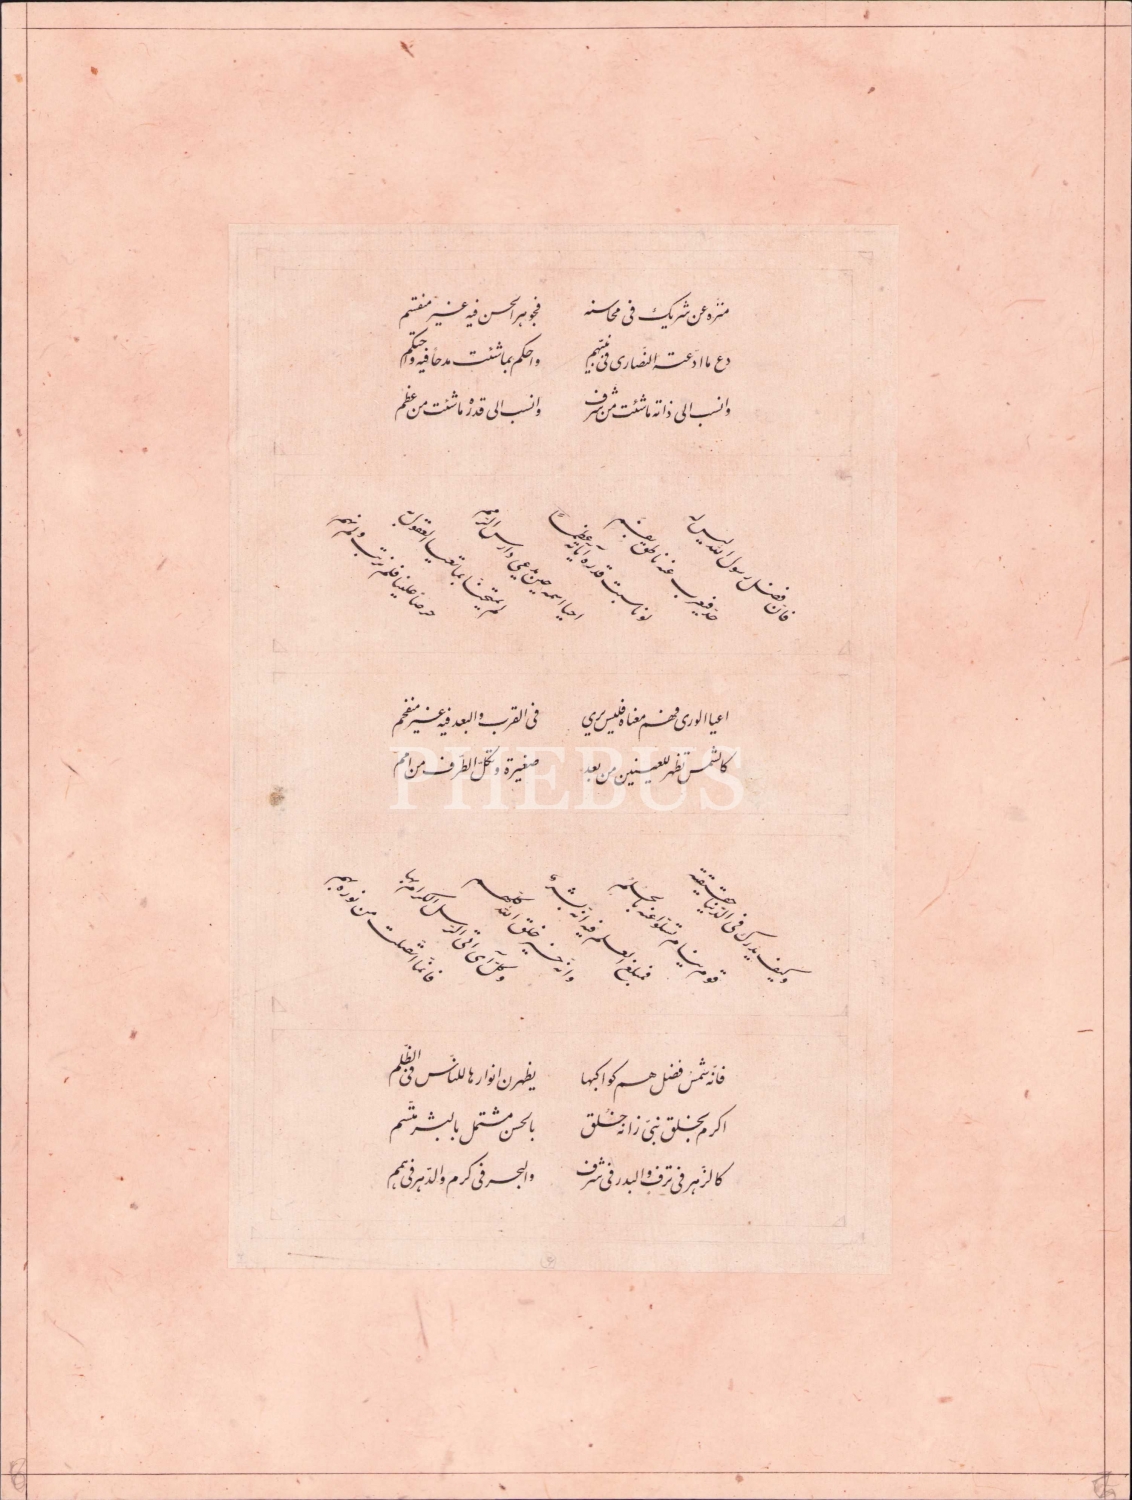 منزّه عن شريك فى محاسنه فجوهر الحسن فيه غير منقسم
دع ما ادّعته النّصارى فى نبيّهم واحكم بماشئت مدحاً فيه واحتكم
وانسب الى ذاته ماشئت من شرف وانسب الى قدره ماشئت من عظم
فانّ فضل رسول الله ليس له
حدّ فيعرب عنه ناطق بفم
لو ناسبت قدره آياته عظماً
احيا اسمه حين يدعى دارس الرّمم
لم يمتحنّا بما تعيا العقول به
حرصاً علينا فلم نرتب ولم نهم
اعيا الورى فهم معناه فليس يرى فى القرب والبعد فيه غير منفحم
كالشّمس تظهر للعينين من بعد صغيرة وتكلّ الطّرف من امم
وكيف يدرك فى الدّنيا حقيقته
قوم نيام تسلّوا عنه بالحلم
فمبلغ العلم فيه انّه بشر
وانّه خير خلق الله كلّهم
وكلّ آى اتى الرّسل الكرام بها
فانّما اتّصلت من نوره بهم
فانّه شمس فضل هم كواكبها يظهرن انوارها للنّاس فى الظّلم
اكرم بخلق نبىّ زانه خلق بالحسن مشتمل بالبشر متّسم
كالزّهر فى ترف والبدر فى شرف والبحر فى كرم والدّهر فى همم
PHEBUS